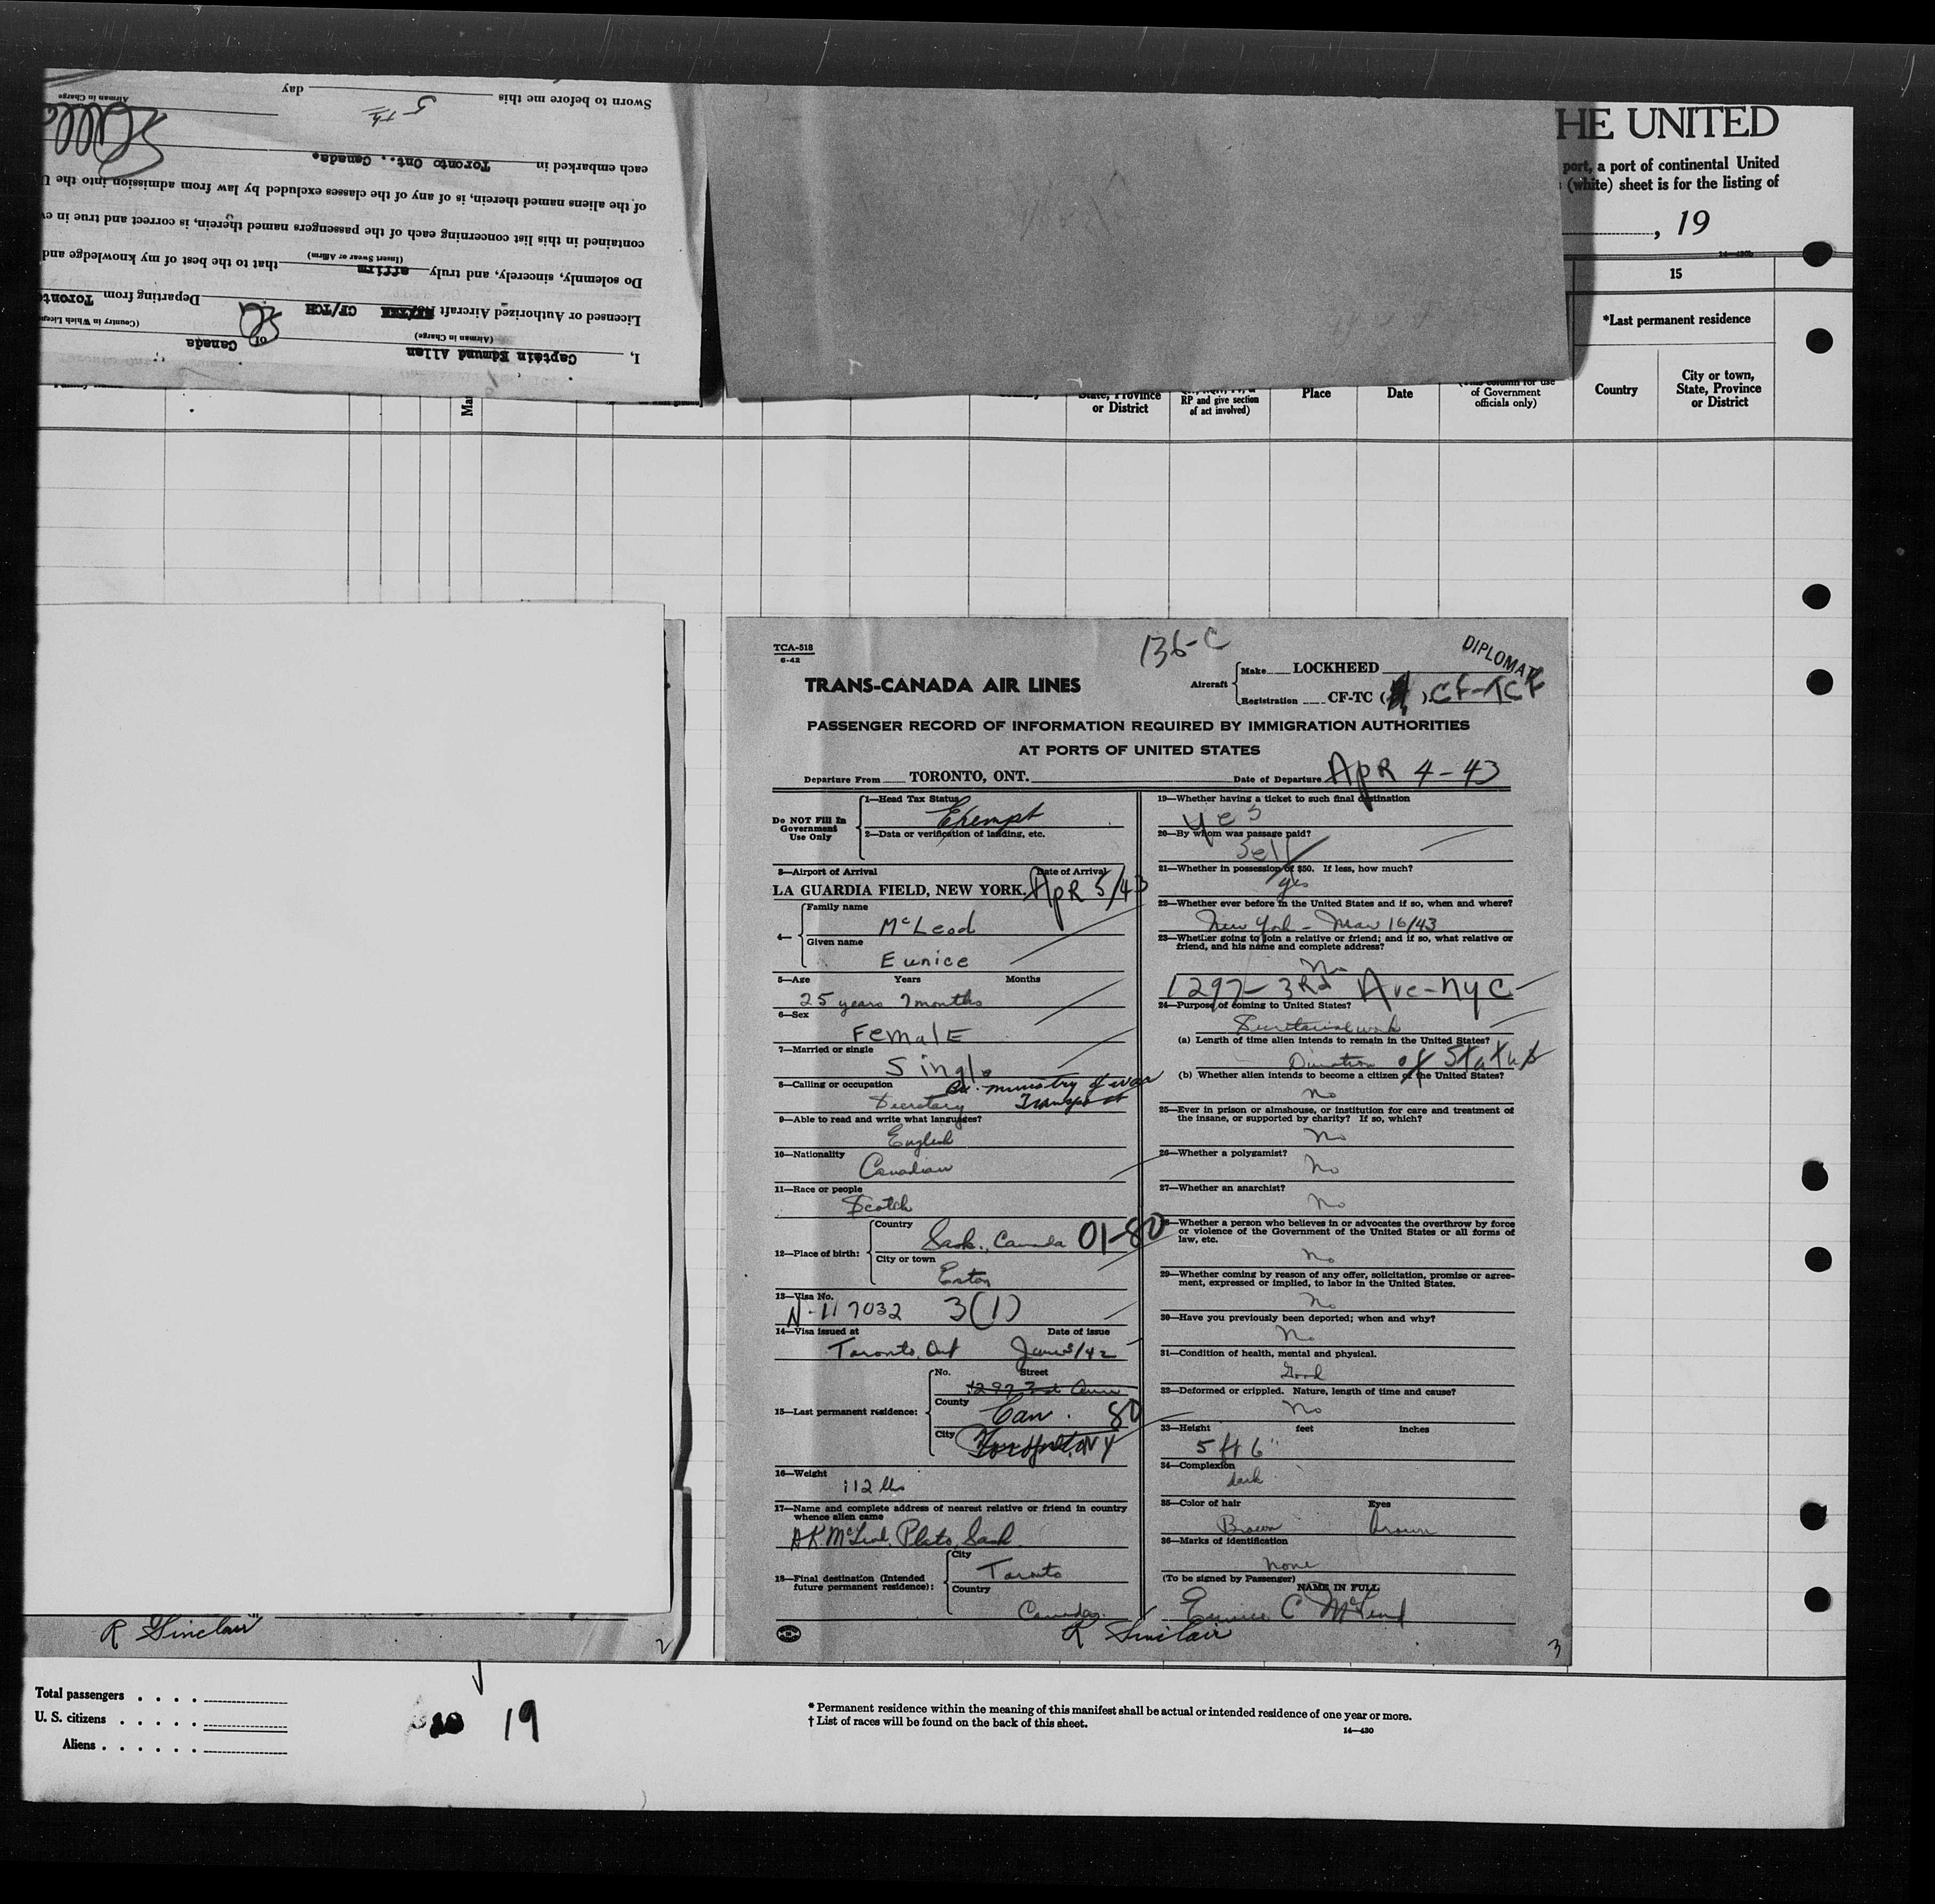 Sworn to before me this 5th day
Airman in Charge
each embarked in Toronto Ont., Canada.
of the aliens named therein, is of any of the classes excluded by law from admission into the U
contained in this list concerning each of the passengers named therein, is correct and true in ev
Do solemnly, sincerely, and truly affirm that to the best of my knowledge and
(Insert Swear or Affirm)
Licensed or Authorized Aircraft CF/TCH Departing from Toronto
(Airman in Charge) (Country in Which License
I, Captain Edmund Allen of Canada
HE UNITED
port, a port of continental United
(white) sheet is for the listing of
, 19
14—430b
15
*Last permanent residence
Country
City or town,
State, Province
or District
Ma
State, Province
or District
RP and give section
of act involved)
Place
Date
(This column for use
of Government
officials only)
TCA-518
6-42
136-C
DIPLOMAT
TRANS-CANADA AIR LINES
Aircraft
Make LOCKHEED
Registration CF-TC ( ) CF-TCF
PASSENGER RECORD OF INFORMATION REQUIRED BY IMMIGRATION AUTHORITIES
AT PORTS OF UNITED STATES
Departure From TORONTO, ONT. Date of Departure APR 4-43
Do NOT Fill In
Government
Use Only
1—Head Tax Status
Exempt
2—Data or verification of landing, etc.
3—Airport of Arrival Date of Arrival
LA GUARDIA FIELD, NEW YORK. APR 5/43
4—
Family name
McLeod
Given name
Eunice
5—Age Years Months
25 years 7 months
6—Sex
Female
7—Married or single
Single
8—Calling or occupation
Br. ministry of war
Secretary Transport
9—Able to read and write what languages?
English
10—Nationality
Canadian
11—Race or people
Scotch
12—Place of birth:
Country
Sask., Canada 01-80
City or town
Eston
13—Visa No.
N-117032 3(1)
14—Visa issued at Date of issue
Toronto, Ont
15—Last permanent residence:
No. Street
1297 3rd
County
Can. 80
City
NY
16—Weight
112 lbs
17—Name and complete address of nearest relative or friend in country
whence alien came
McLeod, Plato, Sask.
18—Final destination (Intended
future permanent residence):
City
Toronto
Country
Canada
19—Whether having a ticket to such final destination
Yes
20—By whom was passage paid?
Self
21—Whether in possession of $50. If less, how much?
yes
22—Whether ever before in the United States and if so, when and where?
New York - Mar 16/43
23—Whether going to join a relative or friend; and if so, what relative or
friend, and his name and complete address?
No
1297-3Rd Ave-NYC
24—Purpose of coming to United States?
Secretarial work
(a) Length of time alien intends to remain in the United States?
Duration of Status
(b) Whether alien intends to become a citizen of the United States?
No
25—Ever in prison or almshouse, or institution for care and treatment of
the insane, or supported by charity? If so, which?
No
26—Whether a polygamist?
No
27—Whether an anarchist?
No
28—Whether a person who believes in or advocates the overthrow by force
or violence of the Government of the United States or all forms of
law, etc.
No
29—Whether coming by reason of any offer, solicitation, promise or agree-
ment, expressed or implied, to labor in the United States.
No
30—Have you previously been deported; when and why?
No
31—Condition of health, mental and physical.
Good
32—Deformed or crippled. Nature, length of time and cause?
No
33—Height feet inches
5 ft 6"
34—Complexion
dark
35—Color of hair Eyes
Brown brown
36—Marks of identification
none
(To be signed by Passenger)
NAME IN FULL
Eunice C McLeod
R Sinclair
3
R Sinclair
2
Total passengers
U. S. citizens
Aliens
19
* Permanent residence within the meaning of this manifest shall be actual or intended residence of one year or more.
† List of races will be found on the back of this sheet.
14—430